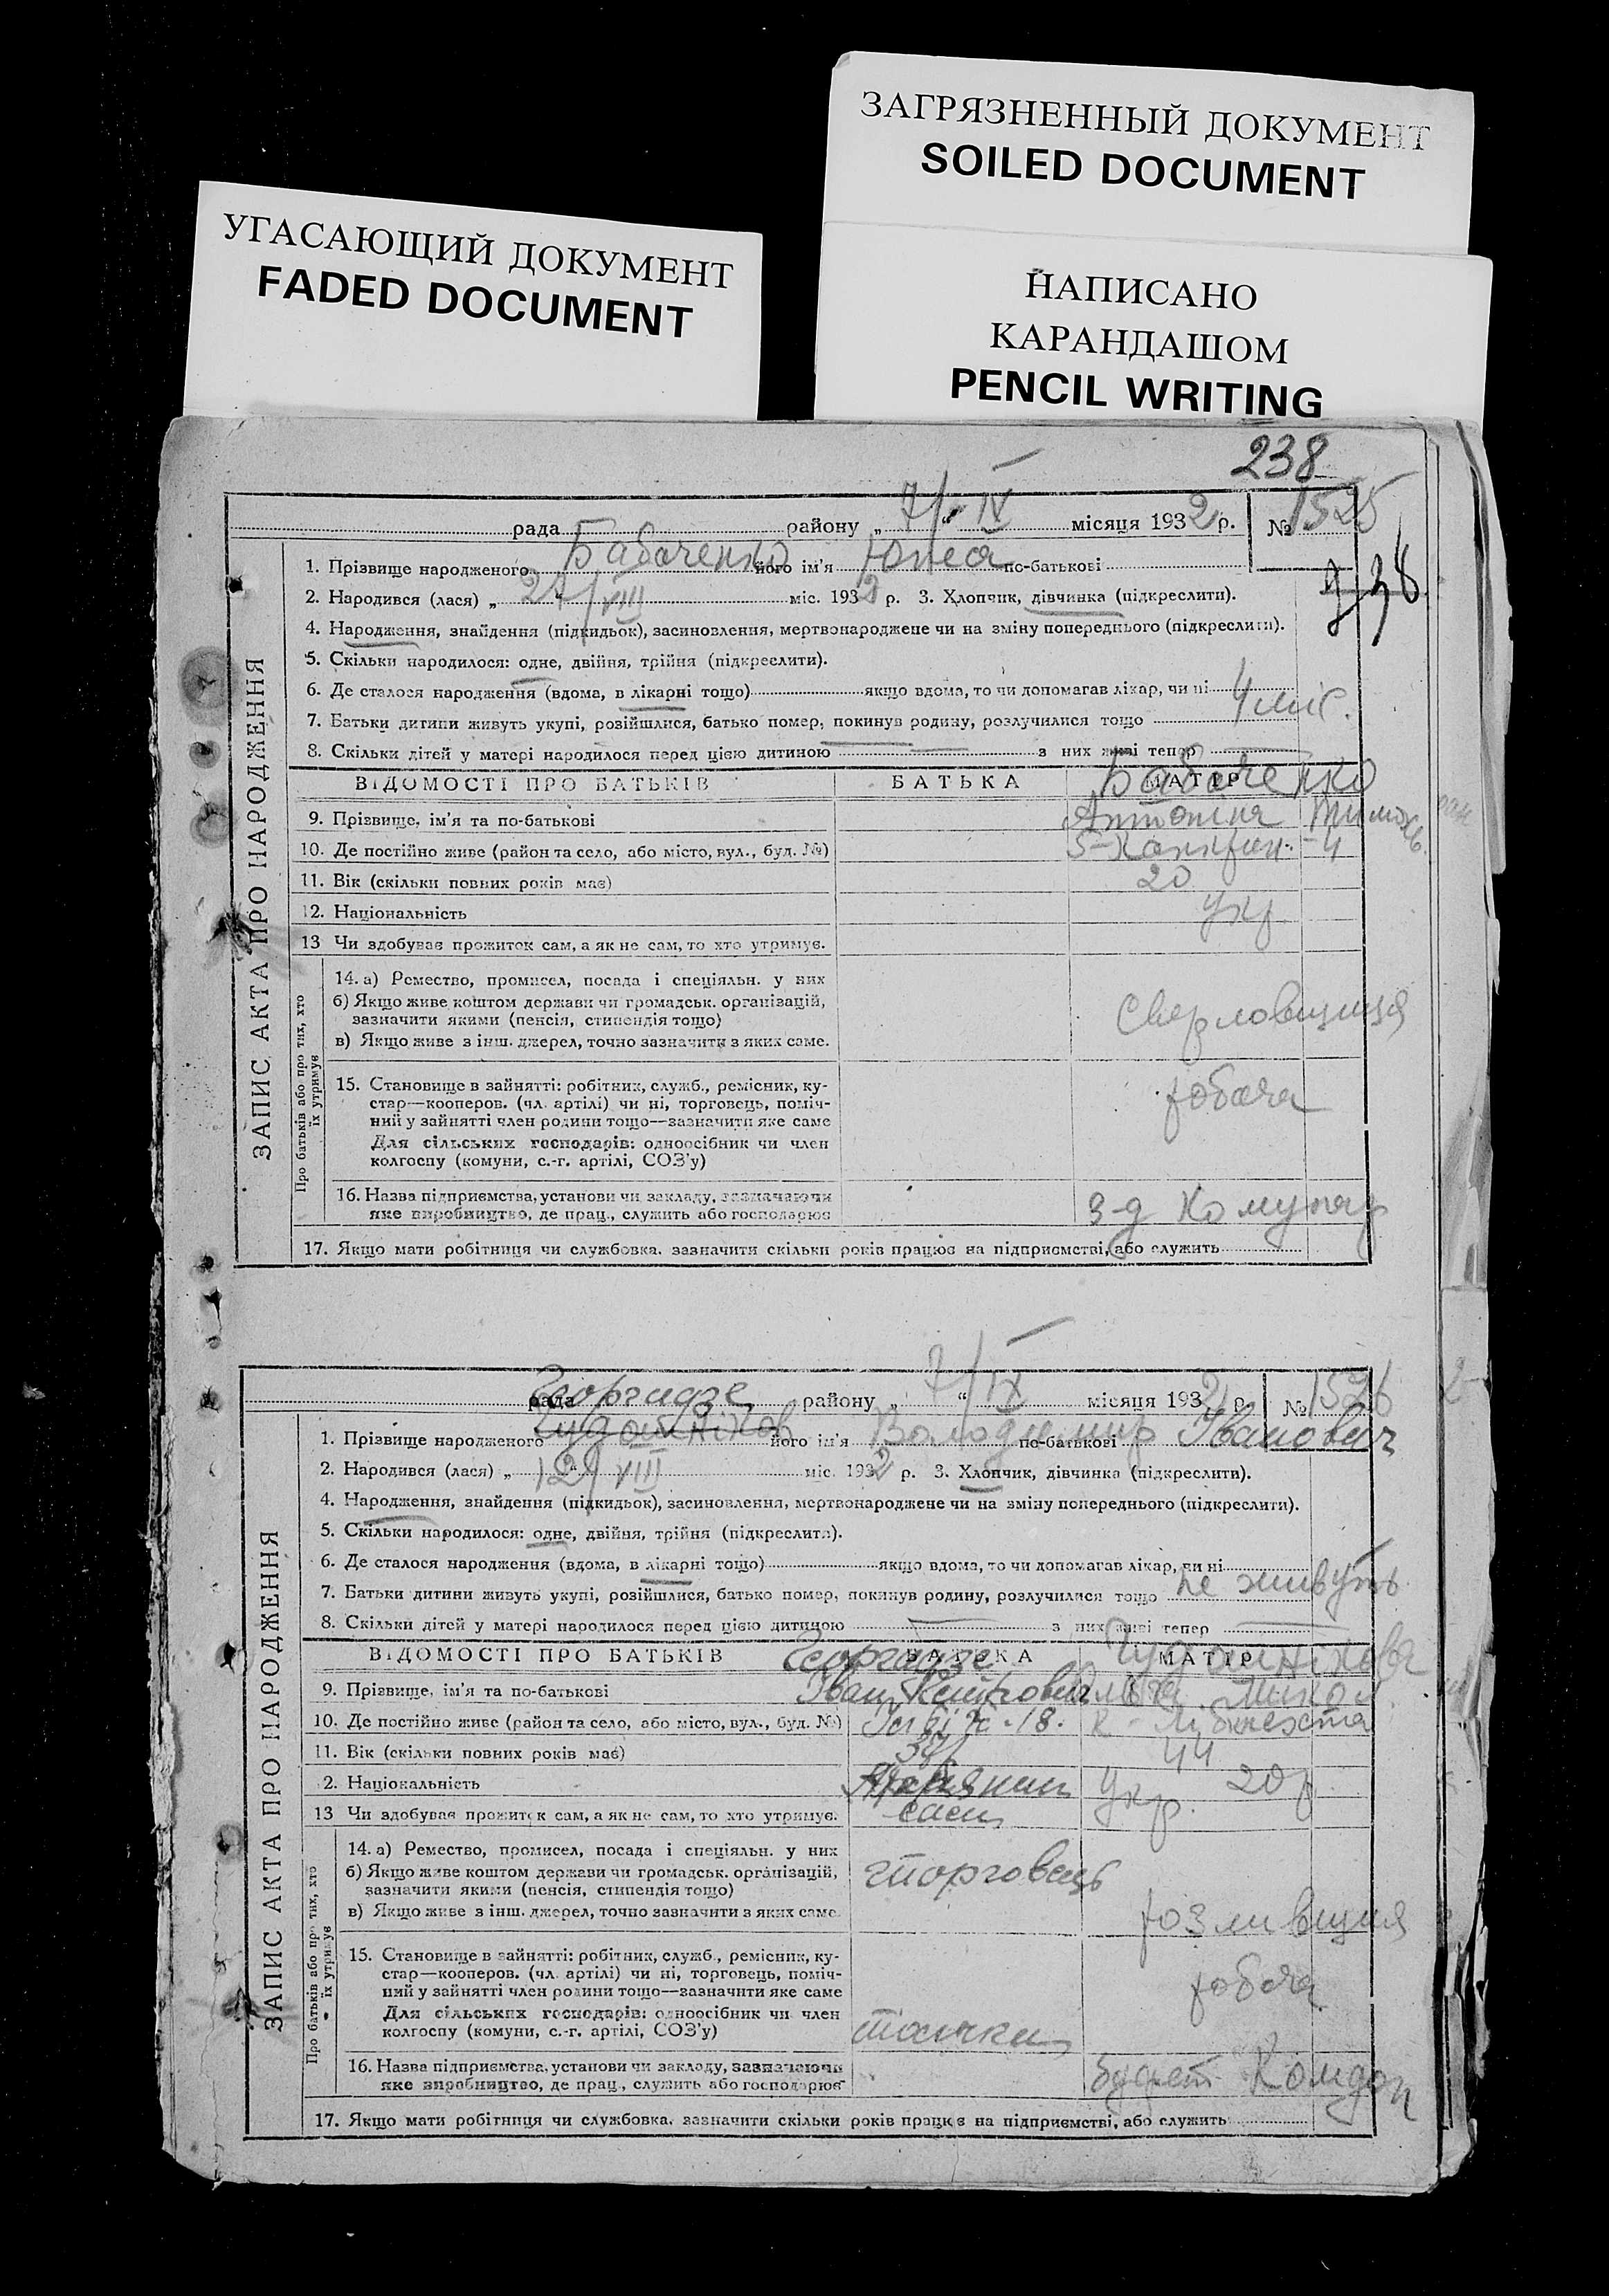 ЗАГРЯЗНЕННЫЙ ДОКУМЕНТ
SOILED DOCUMENT
УГАСАЮЩИЙ ДОКУМЕНТ
FADED DOCUMENT
НАПИСАНО
КАРАНДАШОМ
PENCIL WRITING
238
рада району „ 7/IX місяця 1932 р. № 1525
1. Прізвище народженого Бабаченко його ім'я по-батькові
2. Народився (лася) „ VIII міс. 1932 р. 3. Хлопчик, дівчинка (підкреслити).
4. Народження, знайдення (підкидьок), засиновлення, мертвонароджене чи на зміну попереднього (підкреслити).
5. Скільки народилося: одне, двійня, трійня (підкреслити).
6. Де сталося народження (вдома, в лікарні тощо) якщо вдома, то чи допомагав лікар, чи ні
7. Батьки дитини живуть укупі, розійшлися, батько помер, покинув родину, розлучилися тощо 4 міс.
8. Скільки дітей у матері народилося перед цією дитиною з них живі тепер
ВІДОМОСТІ ПРО БАТЬКІВ БАТЬКА МАТІР Бабаченко
9. Прізвище, ім'я та по-батькові Антоніна
10. Де постійно живе (район та село, або місто, вул., буд. №)
11. Вік (скільки повних років має) 20
12. Національність укр
13 Чи здобуває прожиток сам, а як не сам, то хто утримує.
14. а) Ремество, промисел, посада і спеціяльн. у них
б) Якщо живе коштом держави чи громадськ. організацій,
зазначити якими (пенсія, стипендія тощо) Сверловщиця
в) Якщо живе з інш. джерел, точно зазначити з яких саме.
15. Становище в зайнятті: робітник, служб., ремісник, ку-
стар—кооперов. (чл. артілі) чи ні, торговець, поміч- робоча
ний у зайнятті член родини тощо—зазначити яке саме
Для сільських господарів: одноосібник чи член
колгоспу (комуни, с.-г. артілі, СОЗ'у)
16. Назва підприємства, установи чи закладу, зазначаючи з-д Комунар
яке виробництво, де прац., служить або господарює
17. Якщо мати робітниця чи службовка, зазначити скільки років працює на підприємстві, або служить
ЗАПИС АКТА ПРО НАРОДЖЕННЯ
Про батьків або про тих, хто
їх утримує
Георгидзе
рада району „ 7/IX “ місяця 1932 р. № 1526
1. Прізвище народженого його ім'я Володимир по-батькові Іванович
2. Народився (лася) „ VIII міс. 1932 р. 3. Хлопчик, дівчинка (підкреслити).
4. Народження, знайдення (підкидьок), засиновлення, мертвонароджене чи на зміну попереднього (підкреслити).
5. Скільки народилося: одне, двійня, трійня (підкреслити).
6. Де сталося народження (вдома, в лікарні тощо) якщо вдома, то чи допомагав лікар, чи ні
7. Батьки дитини живуть укупі, розійшлися, батько помер, покинув родину, розлучилися тощо не живуть
8. Скільки дітей у матері народилося перед цією дитиною з них живі тепер
ВІДОМОСТІ ПРО БАТЬКІВ Георгидзе БАТЬКА МАТІР
9. Прізвище, ім'я та по-батькові Іван
10. Де постійно живе (район та село, або місто, вул., буд. №) К - Лібкнехта
11. Вік (скільки повних років має) 44
12. Національність Укр. 20р
13 Чи здобуває прожиток сам, а як не сам, то хто утримує. сам
14. а) Ремество, промисел, посада і спеціяльн. у них
б) Якщо живе коштом держави чи громадськ. організацій, торговець
зазначити якими (пенсія, стипендія тощо)
в) Якщо живе з інш. джерел, точно зазначити з яких саме. розливщиця
15. Становище в зайнятті: робітник, служб., ремісник, ку-
стар—кооперов. (чл. артілі) чи ні, торговець, поміч- робоча
ний у зайнятті член родини тощо—зазначити яке саме
Для сільських господарів: одноосібник чи член
колгоспу (комуни, с.-г. артілі, СОЗ'у)
16. Назва підприємства, установи чи закладу, зазначаючи буфет
яке виробництво, де прац., служить або господарює
17. Якщо мати робітниця чи службовка, зазначити скільки років працює на підприємстві, або служить
ЗАПИС АКТА ПРО НАРОДЖЕННЯ
Про батьків або про тих, хто
їх утримує